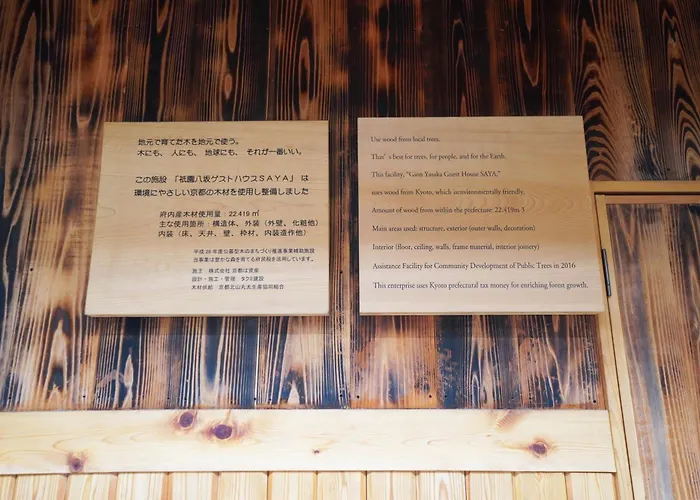 地元で育てた木を地元で使う。
木にも、人にも、地球にも、それが一番いい。
この施設 「祇園八坂ゲストハウスSAYA」 は
環境にやさしい京都の木材を使用し整備しました
府内産木材使用量：22.419 ㎥
主な使用箇所：構造体、外装（外壁、化粧他）
内装（床、天井、壁、枠材、内装造作他）
平成28年度公募型木のまちづくり推進事業補助施設
当事業は豊かな森を育てる府民税を活用しています。
施主：株式会社 京都は資産
設計・施工・管理：タクミ建設
木材供給：京都北山丸太生産協同組合
Use wood from local trees.
That's best for trees, for people, and for the Earth.
This facility, "Gion Yasaka Guest House SAYA,"
uses wood from Kyoto, which is environmentally friendly.
Amount of wood from within the prefecture: 22.419m 3
Main areas used: structure, exterior (outer walls, decoration)
Interior (floor, ceiling, walls, frame material, interior joinery)
Assistance Facility for Community Development of Public Trees in 2016
This enterprise uses Kyoto prefectural tax money for enriching forest growth.